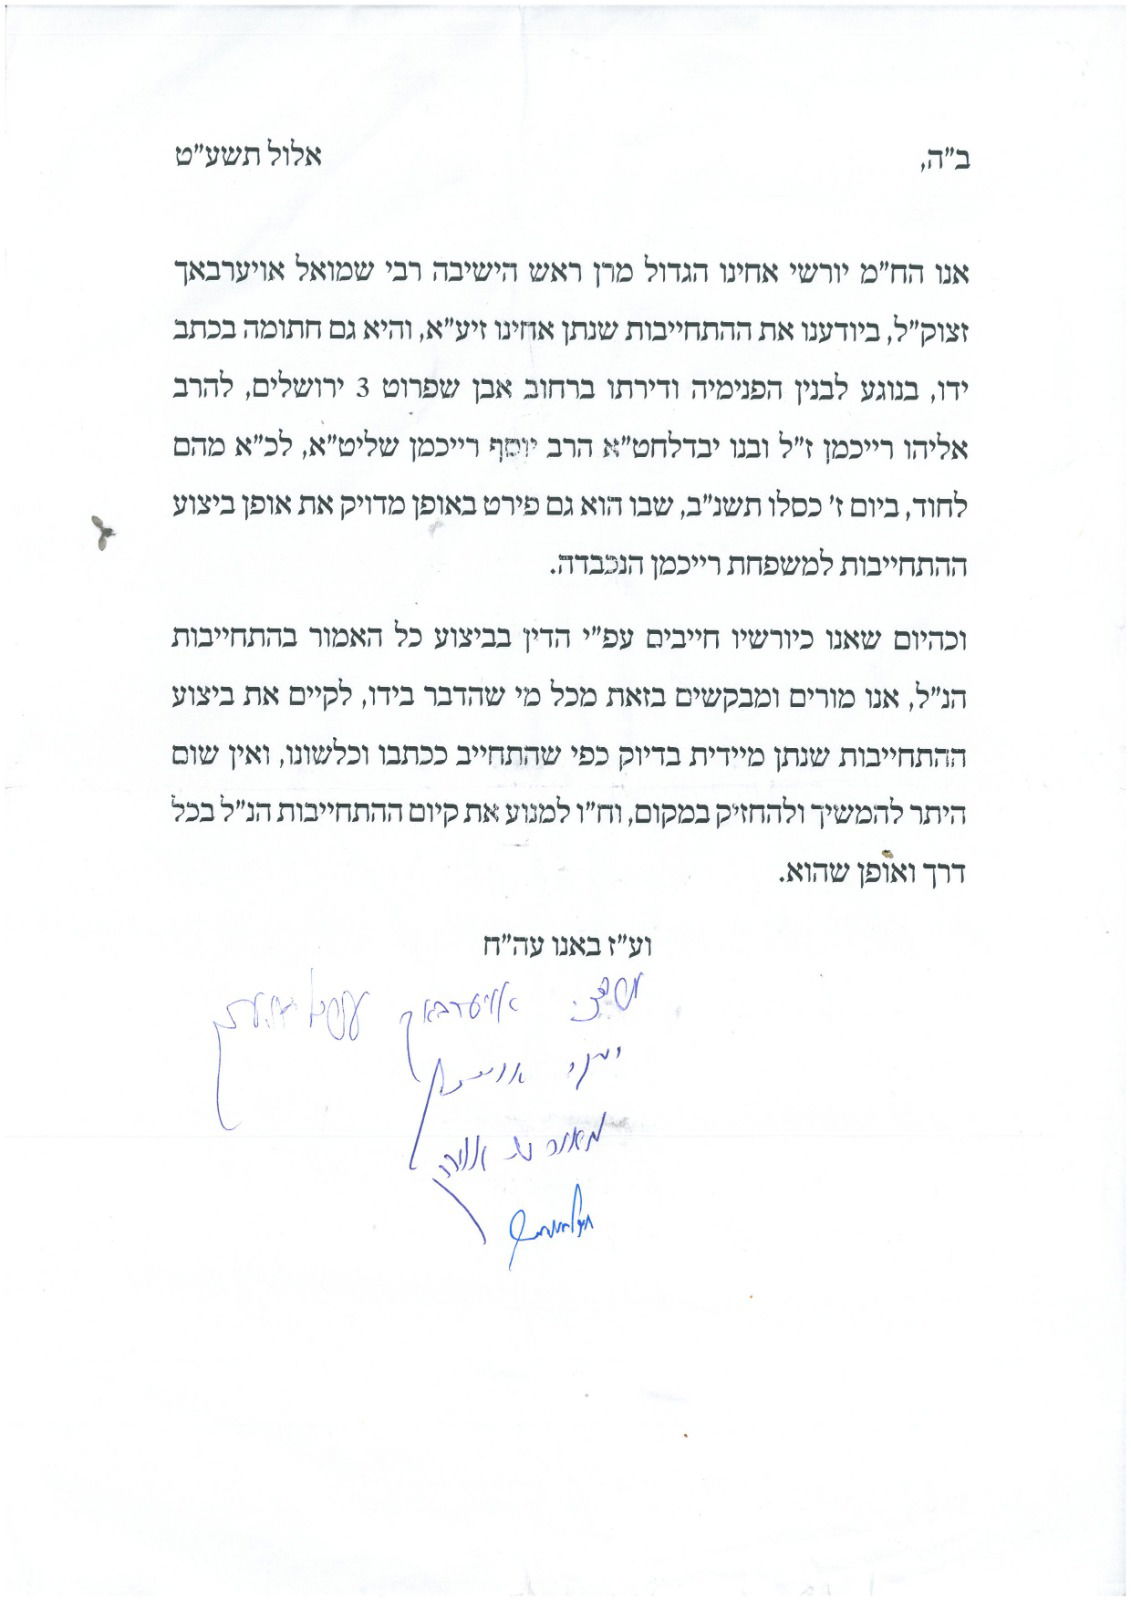 ב"ה, אלול תשע"ט
אנו הח"מ יורשי אחינו הגדול מרן ראש הישיבה רבי שמואל אויערבאך
זצוק"ל, ביודענו את ההתחייבות שנתן אחינו זיע"א, והיא גם חתומה בכתב
ידו, בנוגע לבנין הפנימיה ודירתו ברחוב אבן שפרוט 3 ירושלים, להרב
אליהו רייכמן ז"ל ובנו יבדלחט"א הרב יוסף רייכמן שליט"א, לכ"א מהם
לחוד, ביום ז' כסלו תשנ"ב, שבו הוא גם פירט באופן מדויק את אופן ביצוע
ההתחייבות למשפחת רייכמן הנכבדה.
וכהיום שאנו כיורשיו חייבים עפ"י הדין בביצוע כל האמור בהתחייבות
הנ"ל, אנו מורים ומבקשים בזאת מכל מי שהדבר בידו, לקיים את ביצוע
ההתחייבות שנתן מיידית בדיוק כפי שהתחייב ככתבו וכלשונו, ואין שום
היתר להמשיך ולהחזיק במקום, וח"ו למנוע את קיום ההתחייבות הנ"ל בכל
דרך ואופן שהוא.
וע"ז באנו עה"ח
אויערבאך